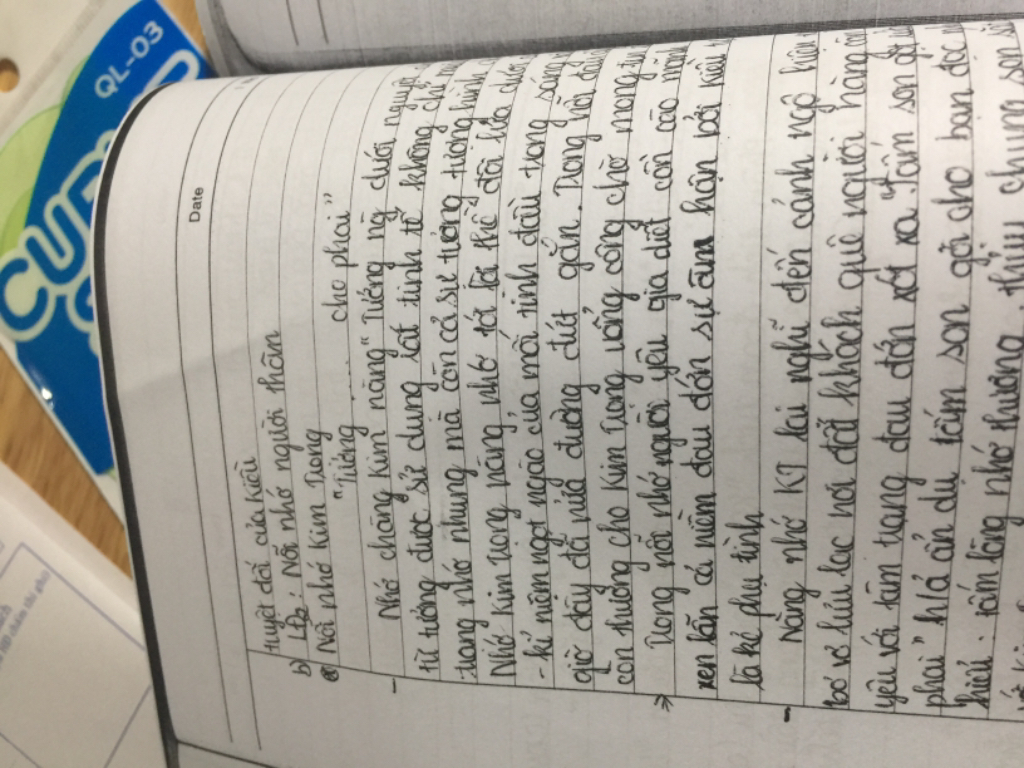 QL-03
Date
tuyệt đá của Kiều
b) Nỗi nhớ người thân
Nỗi nhớ Kim Trọng
"Tưởng ........ cho phai"
- Nhớ chàng Kim nàng "Tưởng ng dưới nguyệt
từ tưởng được sử dụng rất tinh tế không chỉ
trong nhớ nhung mà còn cả sự tưởng tượng hình
Nhớ Kim Trọng nàng nhớ tới lời thề đôi lứa dưới
- kỉ niệm ngọt ngào của mối tình đầu trong sáng
giờ đây đã nửa đường đứt gán. Nàng
còn tưởng cho Kim Trọng uổng công chờ mong
=> Trong nỗi nhớ người yêu gia diết cồn cào
xen lẫn cả niềm đau đớn sự ân hận bởi Kiều
là kẻ phụ tình
- Nàng nhớ KT lại nghĩ đến cảnh ngộ hiện
bơ vơ lưu lạc nơi đất khách quê người
yêu với tâm trạng đau đớn xót xa. "Tấm son
phai" h/a ẩn dụ tấm son gợi cho bạn đọc
hiểu: tấm lòng nhớ thương, thủy chung son